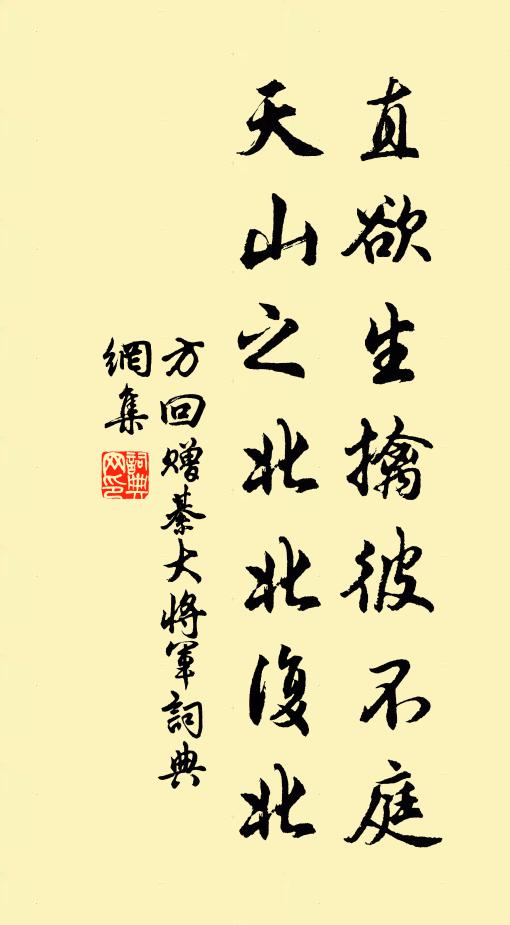 直欲生擒彼不庭
天山之北北復北
方回赠綦大将軍詞典
網集
詞典
网印